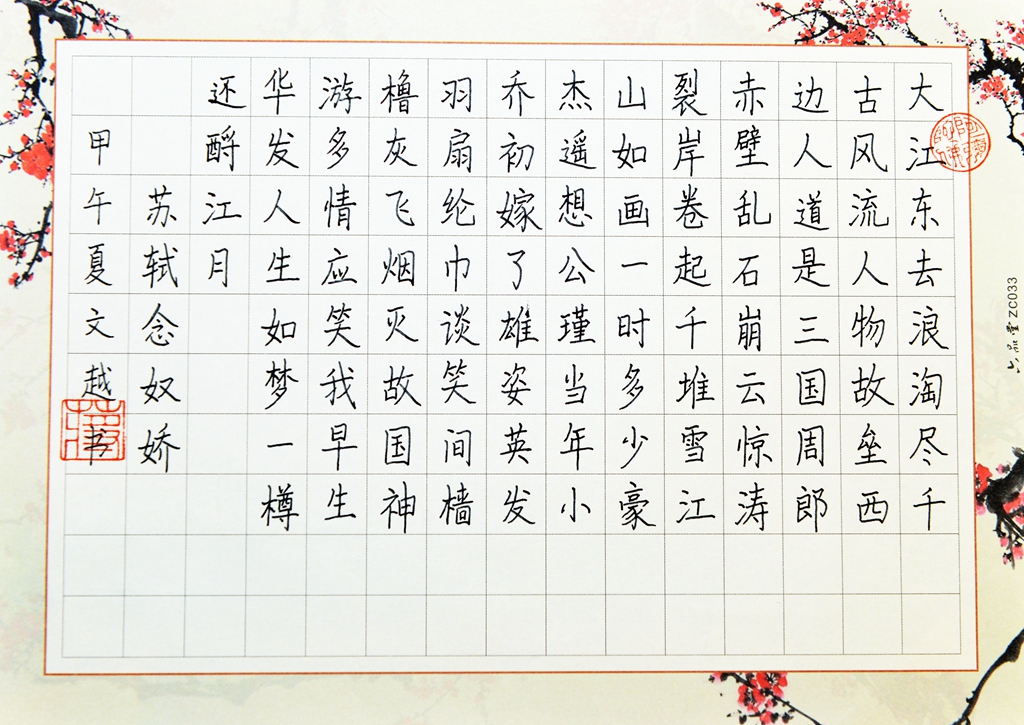 大江东去浪淘尽千
古风流人物故垒西
边人道是三国周郎
赤壁乱石崩云惊涛
裂岸卷起千堆雪江
山如画一时多少豪
杰遥想公瑾当年小
乔初嫁了雄姿英发
羽扇纶巾谈笑间樯
橹灰飞烟灭故国神
游多情应笑我早生
华发人生如梦一樽
还酹江月
苏轼念奴娇
甲午夏文越书
六品堂 ZC033